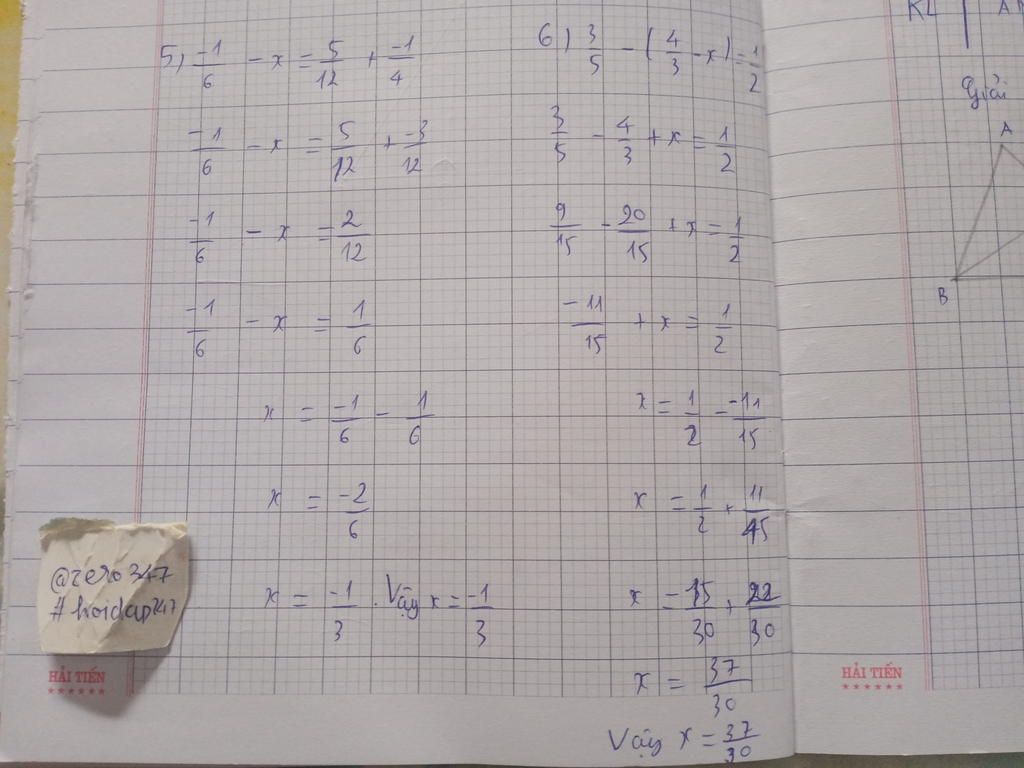 5) -1/6 - x = 5/12 + -1/4
-1/6 - x = 5/12 + -3/12
-1/6 - x = 2/12
-1/6 - x = 1/6
x = -1/6 - 1/6
x = -2/6
x = -1/3 . Vậy x = -1/3
6) 3/5 - (4/3 - x) = 1/2
3/5 - 4/3 + x = 1/2
9/15 - 20/15 + x = 1/2
-11/15 + x = 1/2
x = 1/2 - -11/15
x = 1/2 + 11/15
x = 15/30 + 22/30
x = 37/30
Vậy x = 37/30
@zero347
#hoidap247
HẢI TIẾN
HẢI TIẾN
KL
Giải
A
B